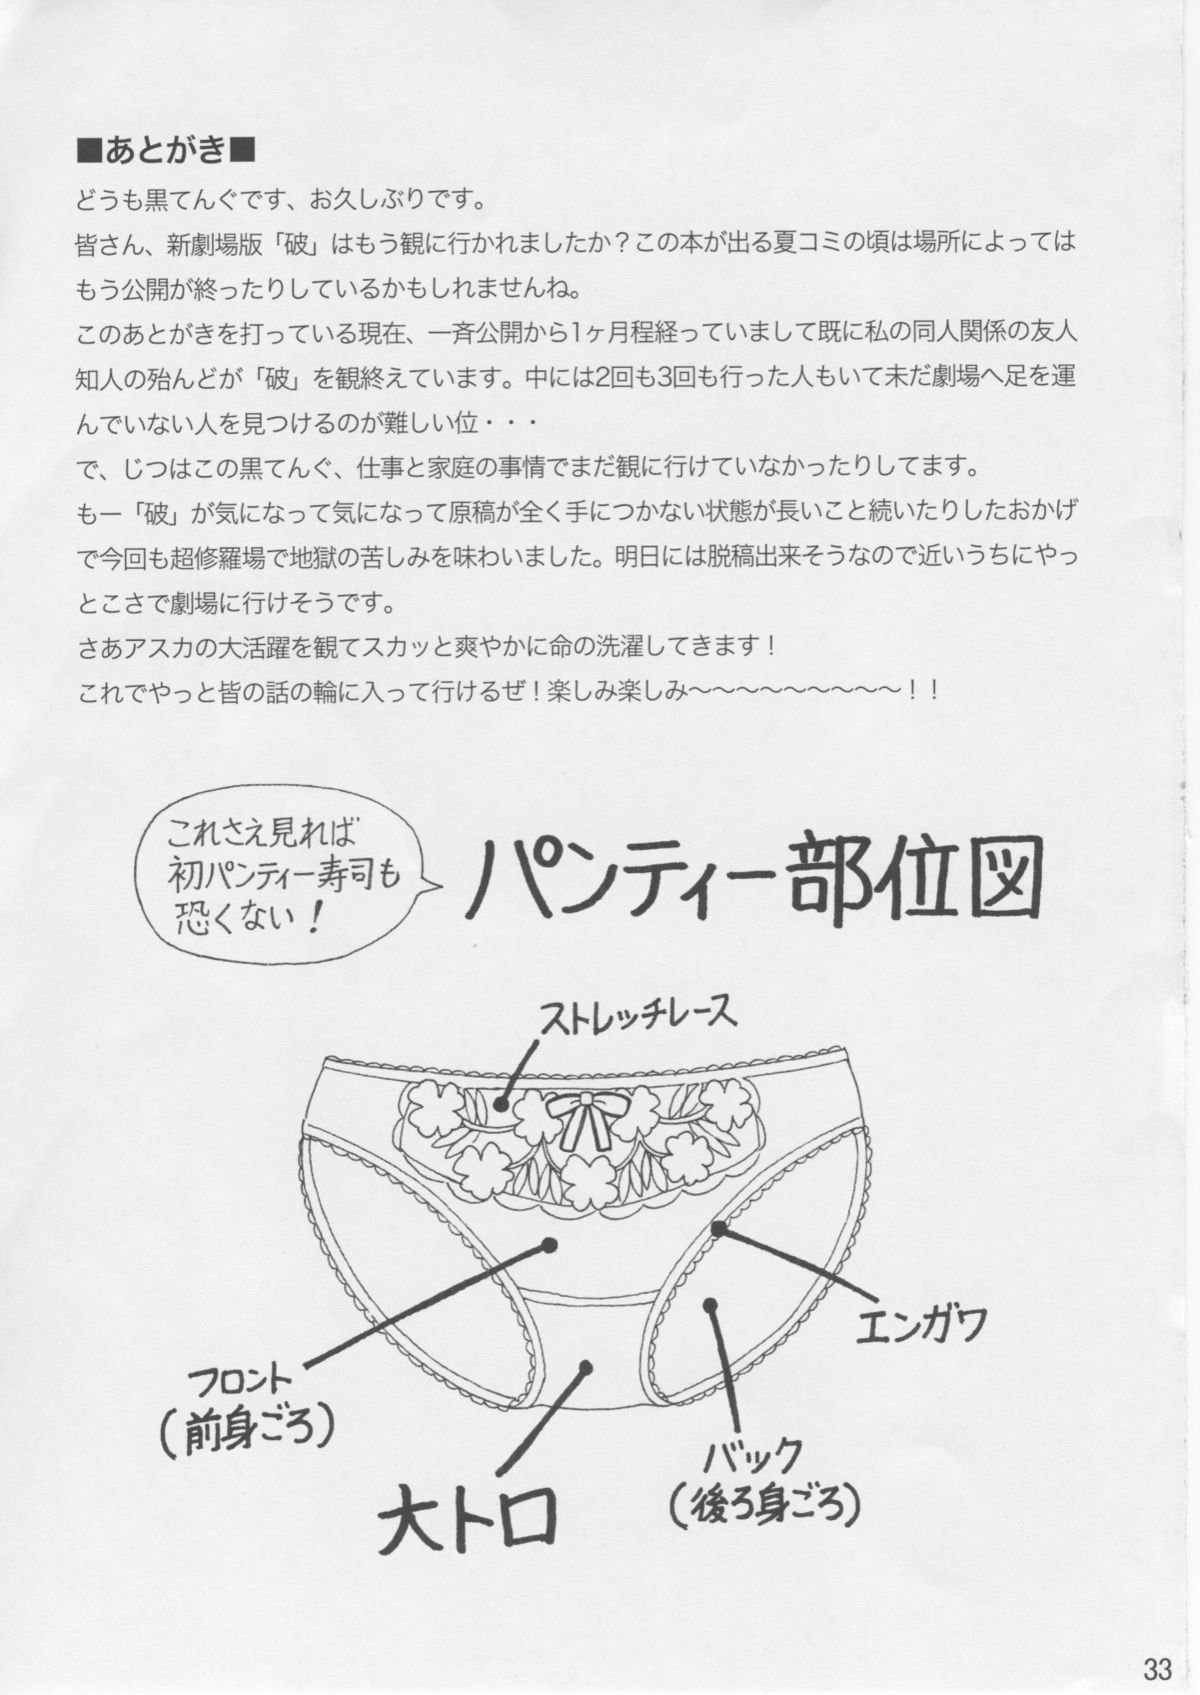 ■あとがき■
どうも黒てんぐです、お久しぶりです。
皆さん、新劇場版「破」はもう観に行かれましたか？この本が出る夏コミの頃は場所によっては
もう公開が終ったりしているかもしれませんね。
このあとがきを打っている現在、一斉公開から1ヶ月程経っていまして既に私の同人関係の友人
知人の殆んどが「破」を観終えています。中には2回も3回も行った人もいて未だ劇場へ足を運
んでいない人を見つけるのが難しい位・・・
で、じつはこの黒てんぐ、仕事と家庭の事情でまだ観に行けていなかったりしてます。
もー「破」が気になって気になって原稿が全く手につかない状態が長いこと続いたりしたおかげ
で今回も超修羅場で地獄の苦しみを味わいました。明日には脱稿出来そうなので近いうちにやっ
とこさで劇場に行けそうです。
さあアスカの大活躍を観てスカッと爽やかに命の洗濯してきます！
これでやっと皆の話の輪に入って行けるぜ！楽しみ楽しみ〜〜〜〜〜〜〜〜〜！！
これさえ見れば
初パンティー寿司も
恐くない！
パンティー部位図
ストレッチレース
エンガワ
フロント
(前身ごろ)
バック
(後ろ身ごろ)
大トロ
33